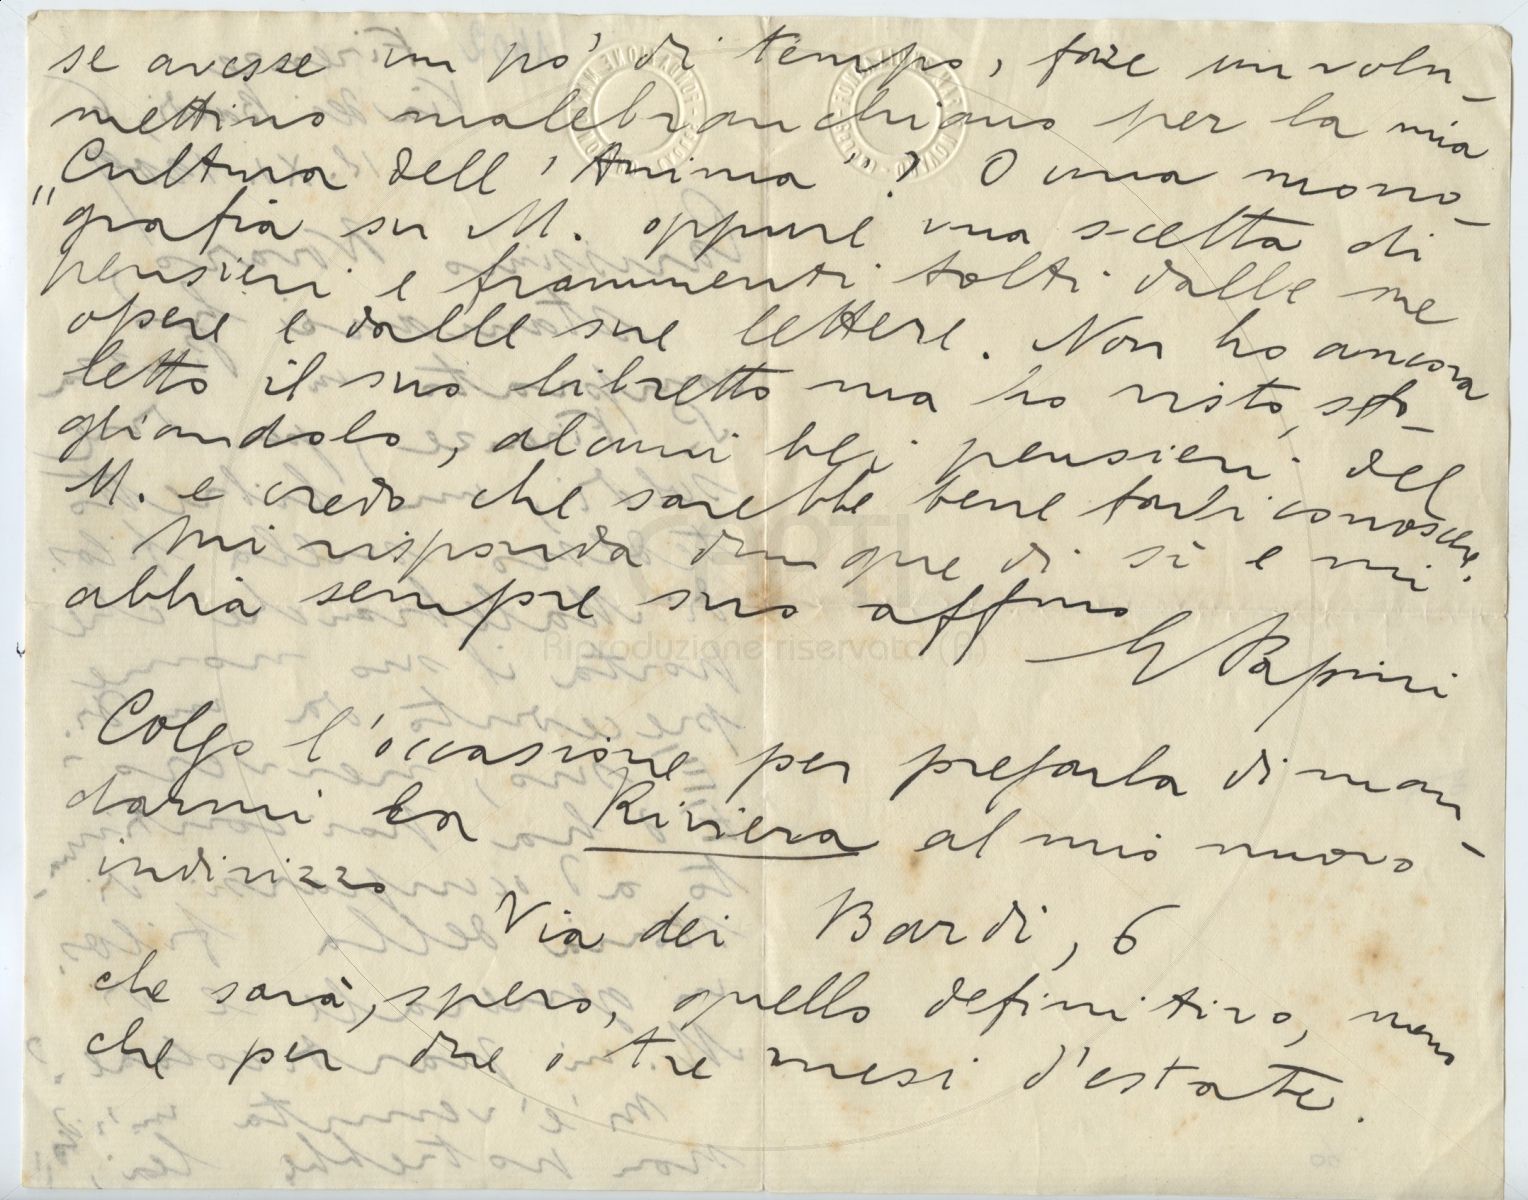 se avesse un po' di tempo, fare un volu-
mettino malebranchiano per la mia
"Cultura dell'Anima"? O una mono-
grafia su M. oppure una scelta di
pensieri e frammenti tolti dalle sue
opere e dalle sue lettere. Non ho ancora
letto il suo libretto ma ho visto, sfo-
gliandolo, alcuni bei pensieri del
M. e credo che sarebbe bene farli conoscere.
Mi risponda dunque di sì e mi
abbia sempre suo affmo
G Papini
Colgo l'occasione per pregarla di man-
darmi la Riviera al mio nuovo
indirizzo
Via dei Bardi, 6
che sarà, spero, quello definitivo, meno
che per due o tre mesi d'estate.
Riproduzione riservata (R)